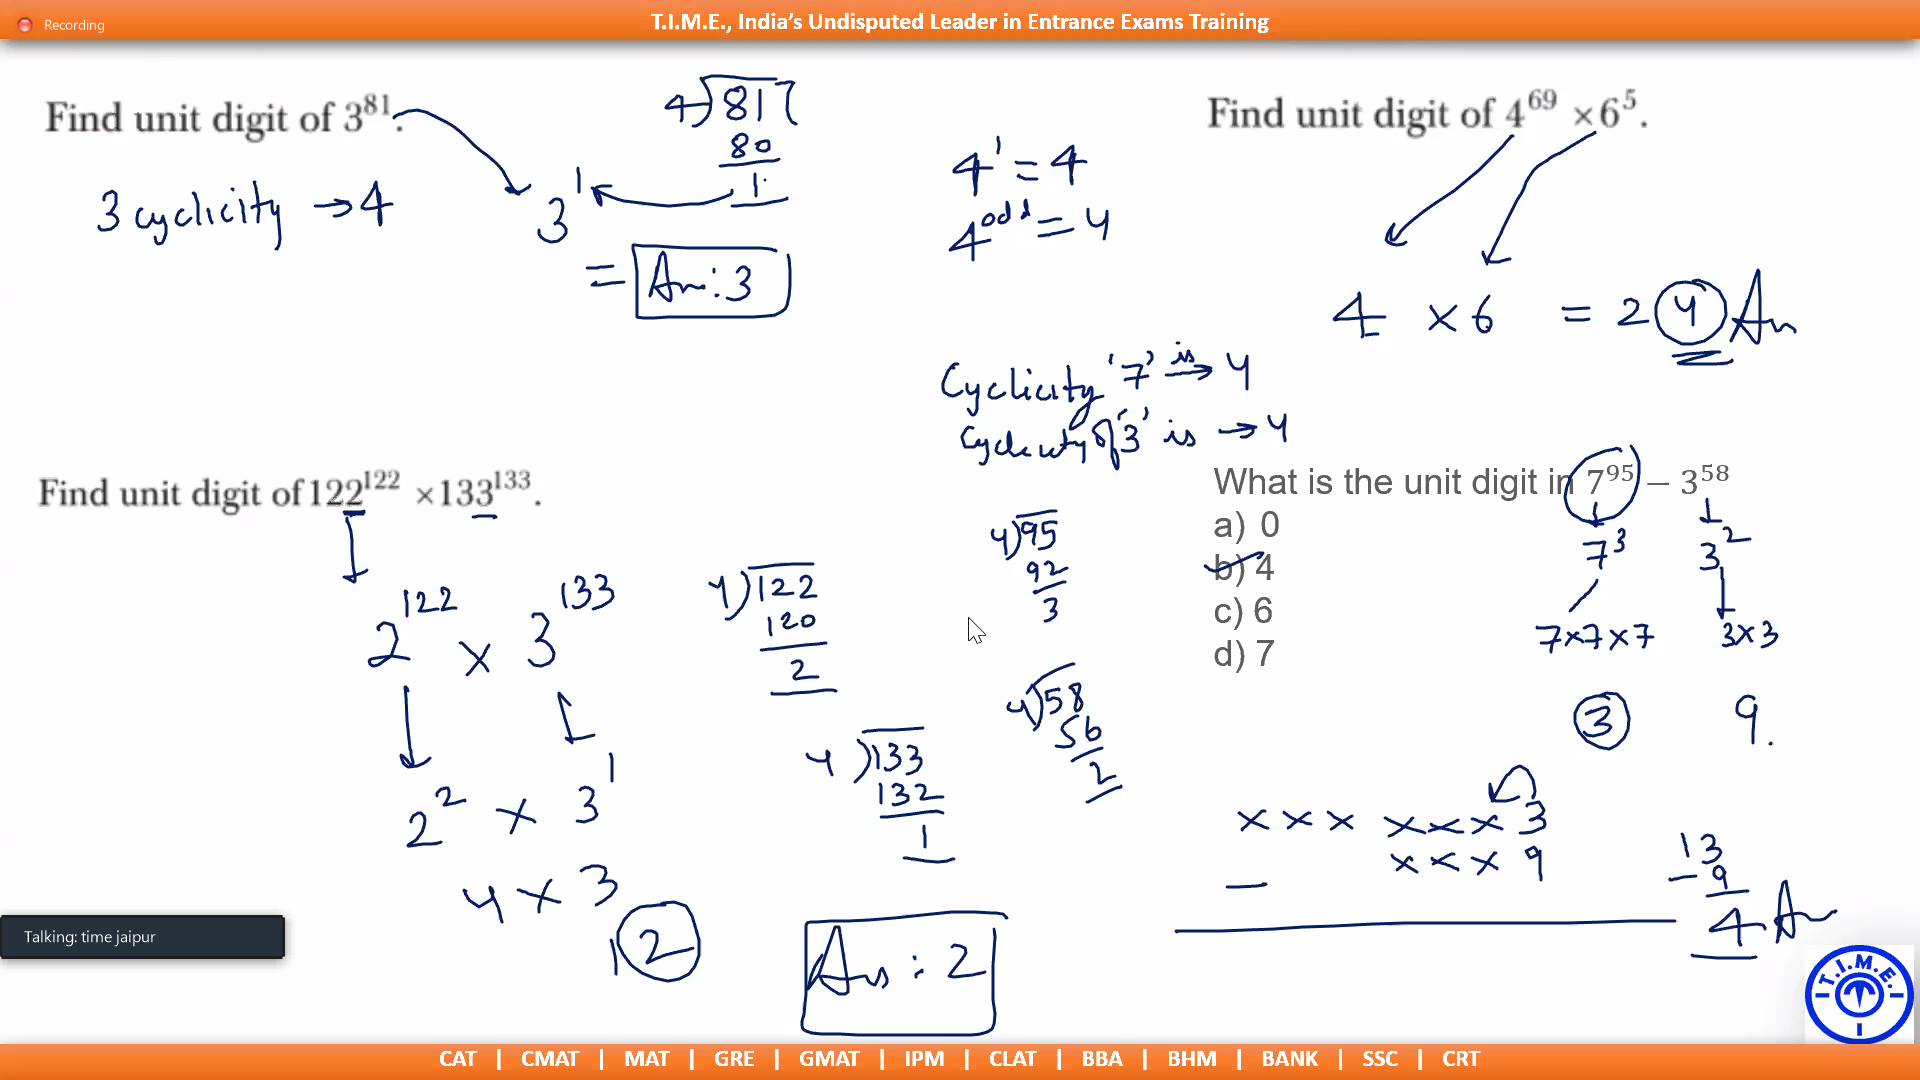 Recording
T.I.M.E., India's Undisputed Leader in Entrance Exams Training
Find unit digit of 3^81.
4)81(
80
1
3 cyclicity → 4
3^1
= Ans: 3
4^1 = 4
4^odd = 4
Find unit digit of 4^69 ×6^5.
4 × 6 = 24 An
Cyclicity '7' is → 4
Cyclicity of '3' is → 4
Find unit digit of 122^122 ×133^133.
2^122 × 3^133
2^2 × 3^1
4 × 3
12
4)122
120
2
4)133
132
1
Ans : 2
4)95
92
3
4)58
56
2
What is the unit digit in 7^95 − 3^58
a) 0
b) 4
c) 6
d) 7
7^3 3^2
7×7×7 3×3
3 9.
× × × × × × 3
× × × 9
−
13
− 9
4 An
Talking: time jaipur
T.I.M.E.
CAT | CMAT | MAT | GRE | GMAT | IPM | CLAT | BBA | BHM | BANK | SSC | CRT